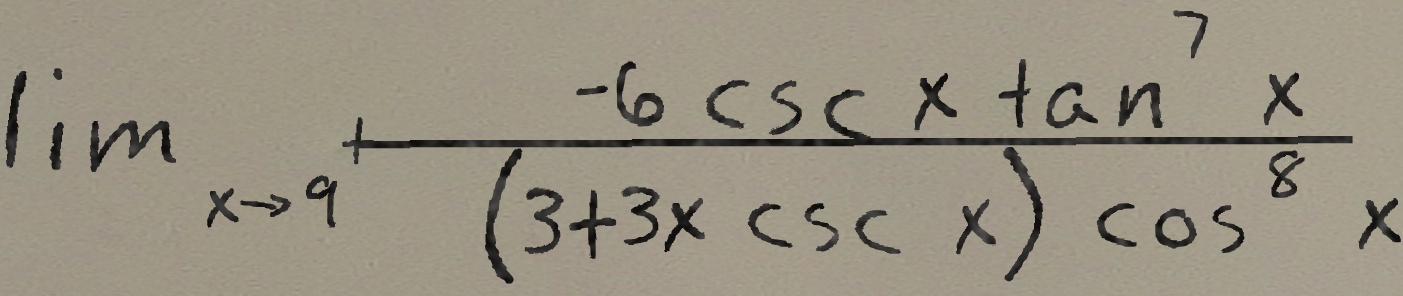 \lim_{x \to 9^+} \frac{-6 \csc x \tan^7 x}{(3+3x \csc x) \cos^8 x}